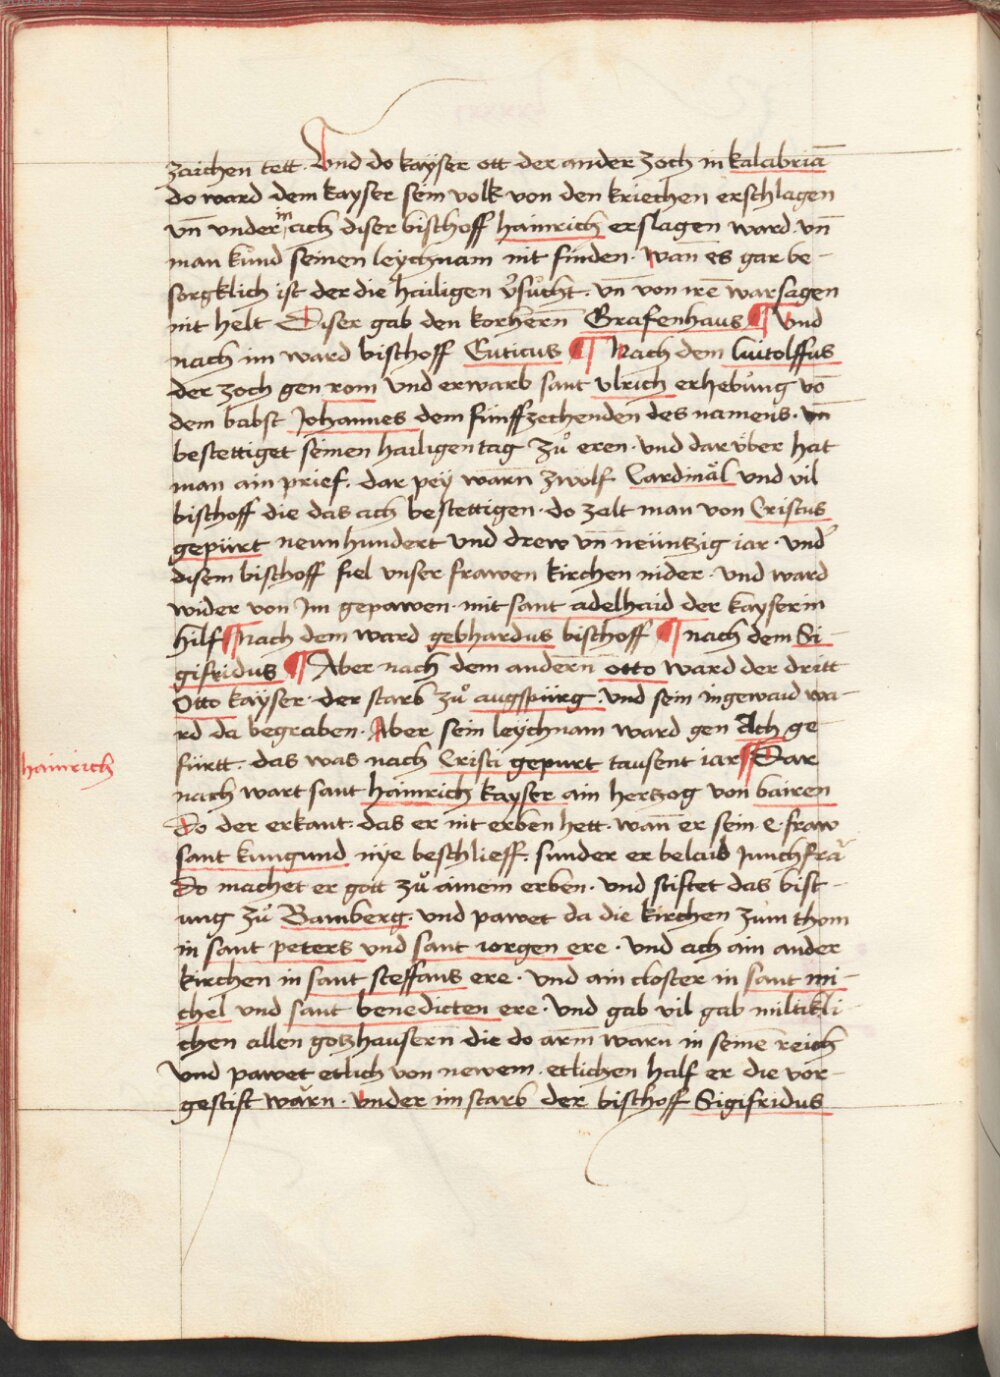 zaichen tett. Vnd do kaÿser ott der ander zoch in kalabriā
do ward dem kayser sein volk von den kriechen erschlagen
vn̄ vnder in ach diser bischoff hainrich erslagen ward. vn̄
man kůnd seinen leychnam nit finden. wan̄ es gar be-
sorgklich ist der die hailigen v̉sůcht. vn̄ von irē warsagen
nit helt Diser gab den korhern̄ Grafenhaus ¶ Vnd
nach im ward bischoff Euticus ¶ Nach dem luitolffus
der zoch gen rom vnd erwarb sant vlrich erhebůng vō
dem babst Johannes dem fünffzechenden des namens. vn̄
bestettiget seinen hailigen tag zů eren. vnd dar über hat
man ain prief. dar peÿ warn̄ zwölf Cardinäl vnd vil
bischoff die das ach bestettigen. do zalt man von Cristus
gepürt neunhundert vnd drew vn̄ neüntzig iar. vnd̉
disem bischoff fiel vnser frawen kirchen nider. vnd ward
wider von Im gepawen. mit sant adelhaid der kayserin
hilf ¶ Nach dem ward gebhardus bischoff ¶ nach dem Si-
gifridus ¶ Aber nach dem andern̄ otto ward der dritt
Otto kaÿser. der starb zů augspürg. vnd sein ingewaid wa-
rd da begraben. Aber sein leÿchnam ward gen Ach ge
fürtt. das was nach Cristi gepurt tausent iar ¶ Dar
nach wart sant hainrich kayser ain hertzog von bairen
do der erkant. das er nit erben hett. wan̄ er sein e. fraw
sant kungund nÿe beschlieff. sunder er belaib Junchfrä
do machet er gott zů ainem erben. vnd stiftet das bist-
ung zů Bamberg. vnd pawet da die kirchen zum thom
in sant peters vnd sant iorgen ere. vnd ach ain ander
kirchen in sant steffans ere. vnd ain closter in sant mi-
chel vnd sant benedicten ere. vnd gab vil gab miltikli-
chen allen gotzhausern̄ die do arm̄ warn in seinē reich
vnd pawet etlich von newem. etlichen half er die vor-
gestift wärn. vnder im starb der bischoff Sigifridus
hainrich